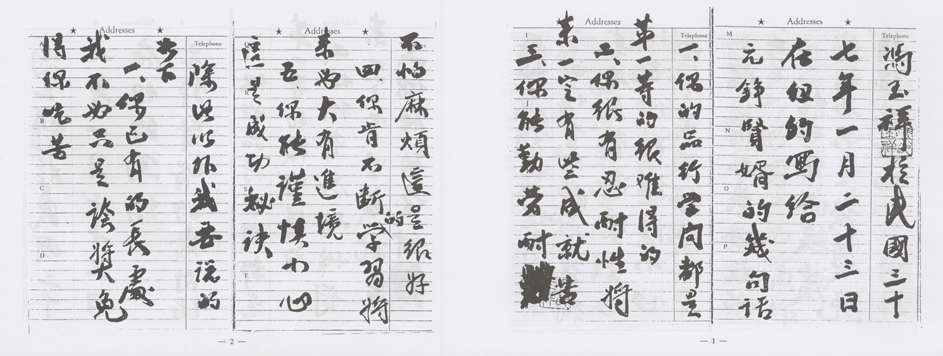 ★ Addresses ★
Telephone
馮玉祥於民國三十
七年一月二十三日
在紐約寫給
元錚賢婿的幾句話
M
N
O
P
Addresses
Telephone
一、你的品行学问都是
第一等的很难得的
二、你很有忍耐性將
来一定有些成就
三、你能勤劳耐苦
I
J
— 1 —
不怕麻煩這是很好的
四、你肯不断学習將
来必大有進境
五、你能謹慎小心
這是成功秘訣
★ Addresses ★
S
T
除此以外我要說的
如下
一、你已有的長處
我不必只是誇奖免
得你吃苦
★ Addresses ★
Telephone
A
B
C
D
— 2 —